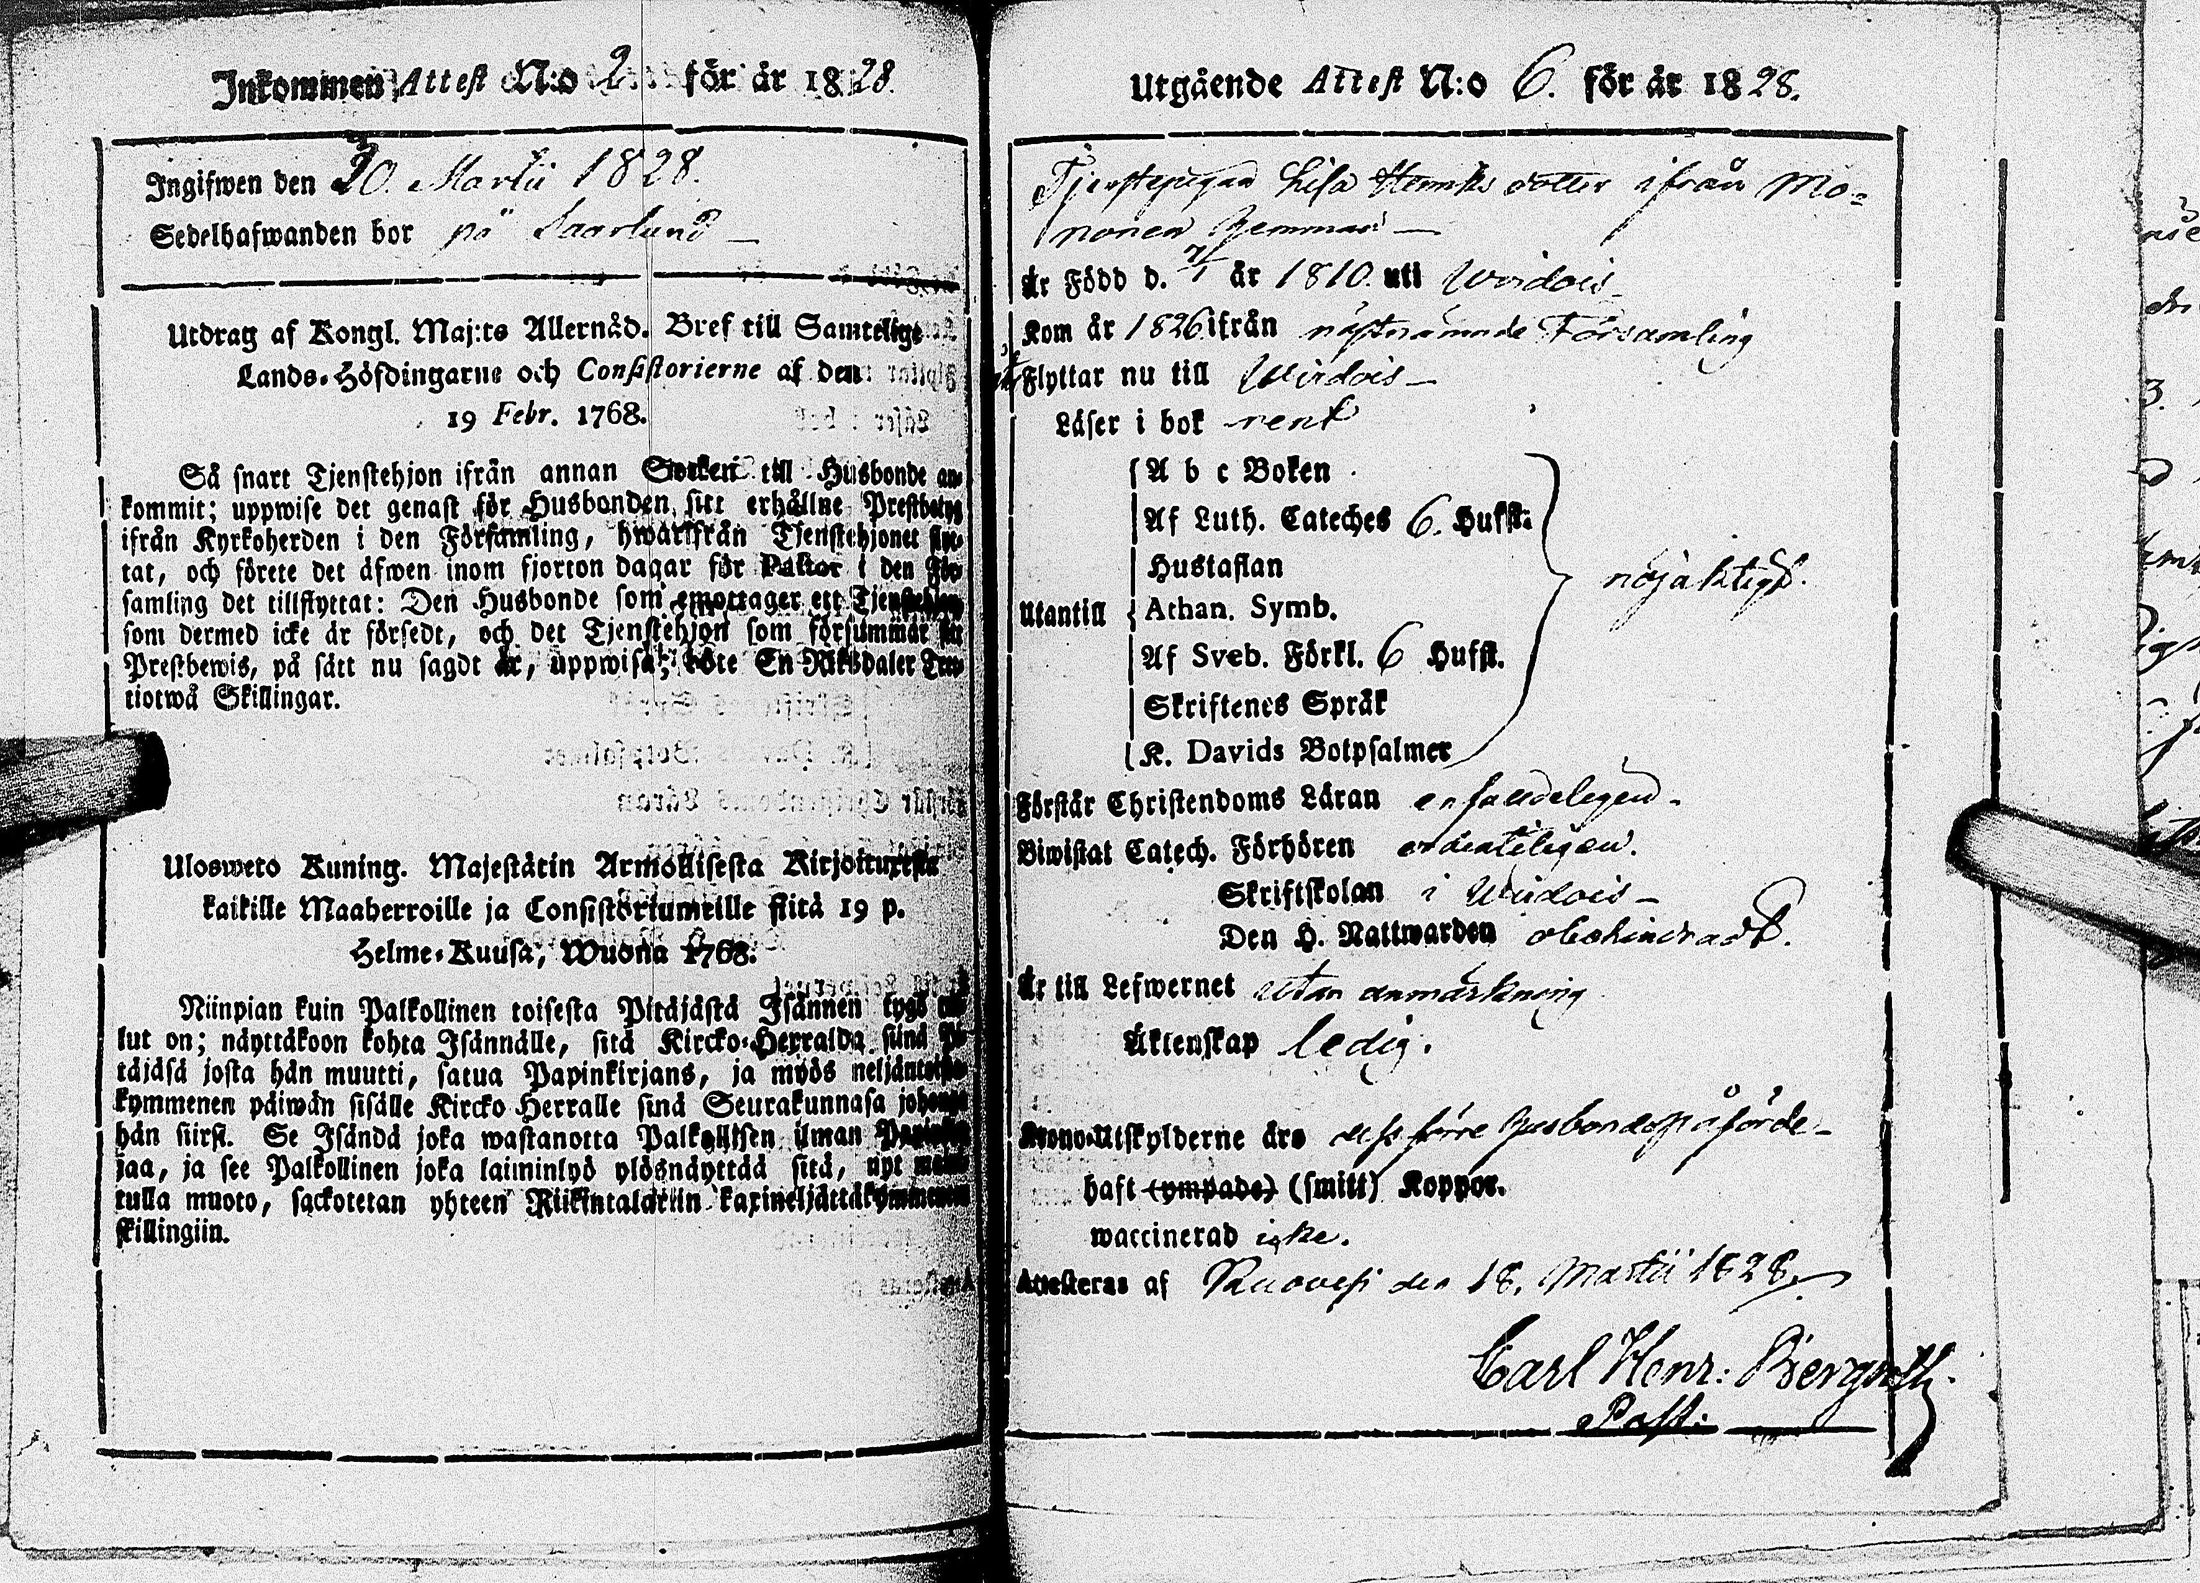 Inkommen Attest N:o 2 för år 1828.
Ingifwen den 30. Martii 1828.
Sedelhafwanden bor på Saarlund
Utdrag af Kongl. Maj:ts Allernåd. Bref till Samtelige
Lands-Höfdingarne och Consistorierne af den
19 Febr. 1768.
Så snart Tjenstehjon ifrån annan Socken till Husbonde an-
kommit; uppwise det genast för Husbonden sitt erhållne Prestbetyg
ifrån Kyrkoherden i den Församling, hwarifrån Tjenstehjonet flyt-
tat, och förete det äfwen inom fjorton dagar för Pastor i den För-
samling det tillflyttat: Den Husbonde som emottager ett Tjenstehjon
som dermed icke är försedt, och det Tjenstehjon som försummar sitt
Prestbewis, på sätt nu sagdt är, uppwisa; böte En Riksdaler Tret-
tiotwå Skillingar.
Ulosweto Kuning. Majestätin Armollisesta Kirjoituxesta
kaikille Maaherroille ja Consistoriumeille siitä 19 p.
Helme-Kuusa, Wuona 1768.
Niinpian kuin Palkollinen toisesta Pitäjästä Isännen tygö tul-
lut on; näyttäkoon kohta Isännälle, sitä Kircko-Herralda siinä Pi-
täjäsä josta hän muutti, saatua Papinkirjans, ja myös neljäntoista-
kymmenen päiwän sisälle Kircko Herralle sinä Seurakunnasa johonga
hän siirsi. Se Isändä joka wastanotta Palkollisen ilman Papinkir-
jaa, ja see Palkollinen joka laiminlyö ylösnäyttää sitä, nyt maini-
tulla muoto, sackotetan yhteen Riikintalariin kaxineljättäkymmenen
skillingiin.
Utgående Attest N:o 6. för år 1828.
Tjenstepigan Lisa Henriks dotter ifrån Mo-
nonen Hemman
Är Född d. 7/1 år 1810. uti Wirdois
Kom år 1826 ifrån nästnämnde Församling
Flyttar nu till Wirdois
Läser i bok rent
A b c Boken
Af Luth. Cateches 6. Hufst.
Hustaflan
Utantill Athan. Symb. nöjaktigt.
Af Sveb. Förkl. 6 Hufst.
Skriftenes Språk
K. Davids Botpsalmer
Förstår Christendoms Läran enfaldeligen
Biwistat Catech. Förhören ordenteligen.
Skriftskolan i Wirdois
Den H. Nattwarden obehindradt.
Är till Lefwernet utan anmärkning
Äktenskap ledig.
Krono-Utskylderne äro dess förre Husbonde påförde
haft (ympade) (smitt) Koppor.
waccinerad icke.
Attesteras af Ruovesi den 18. Martii 1828.
Carl Henr: Bergroth.
Past: